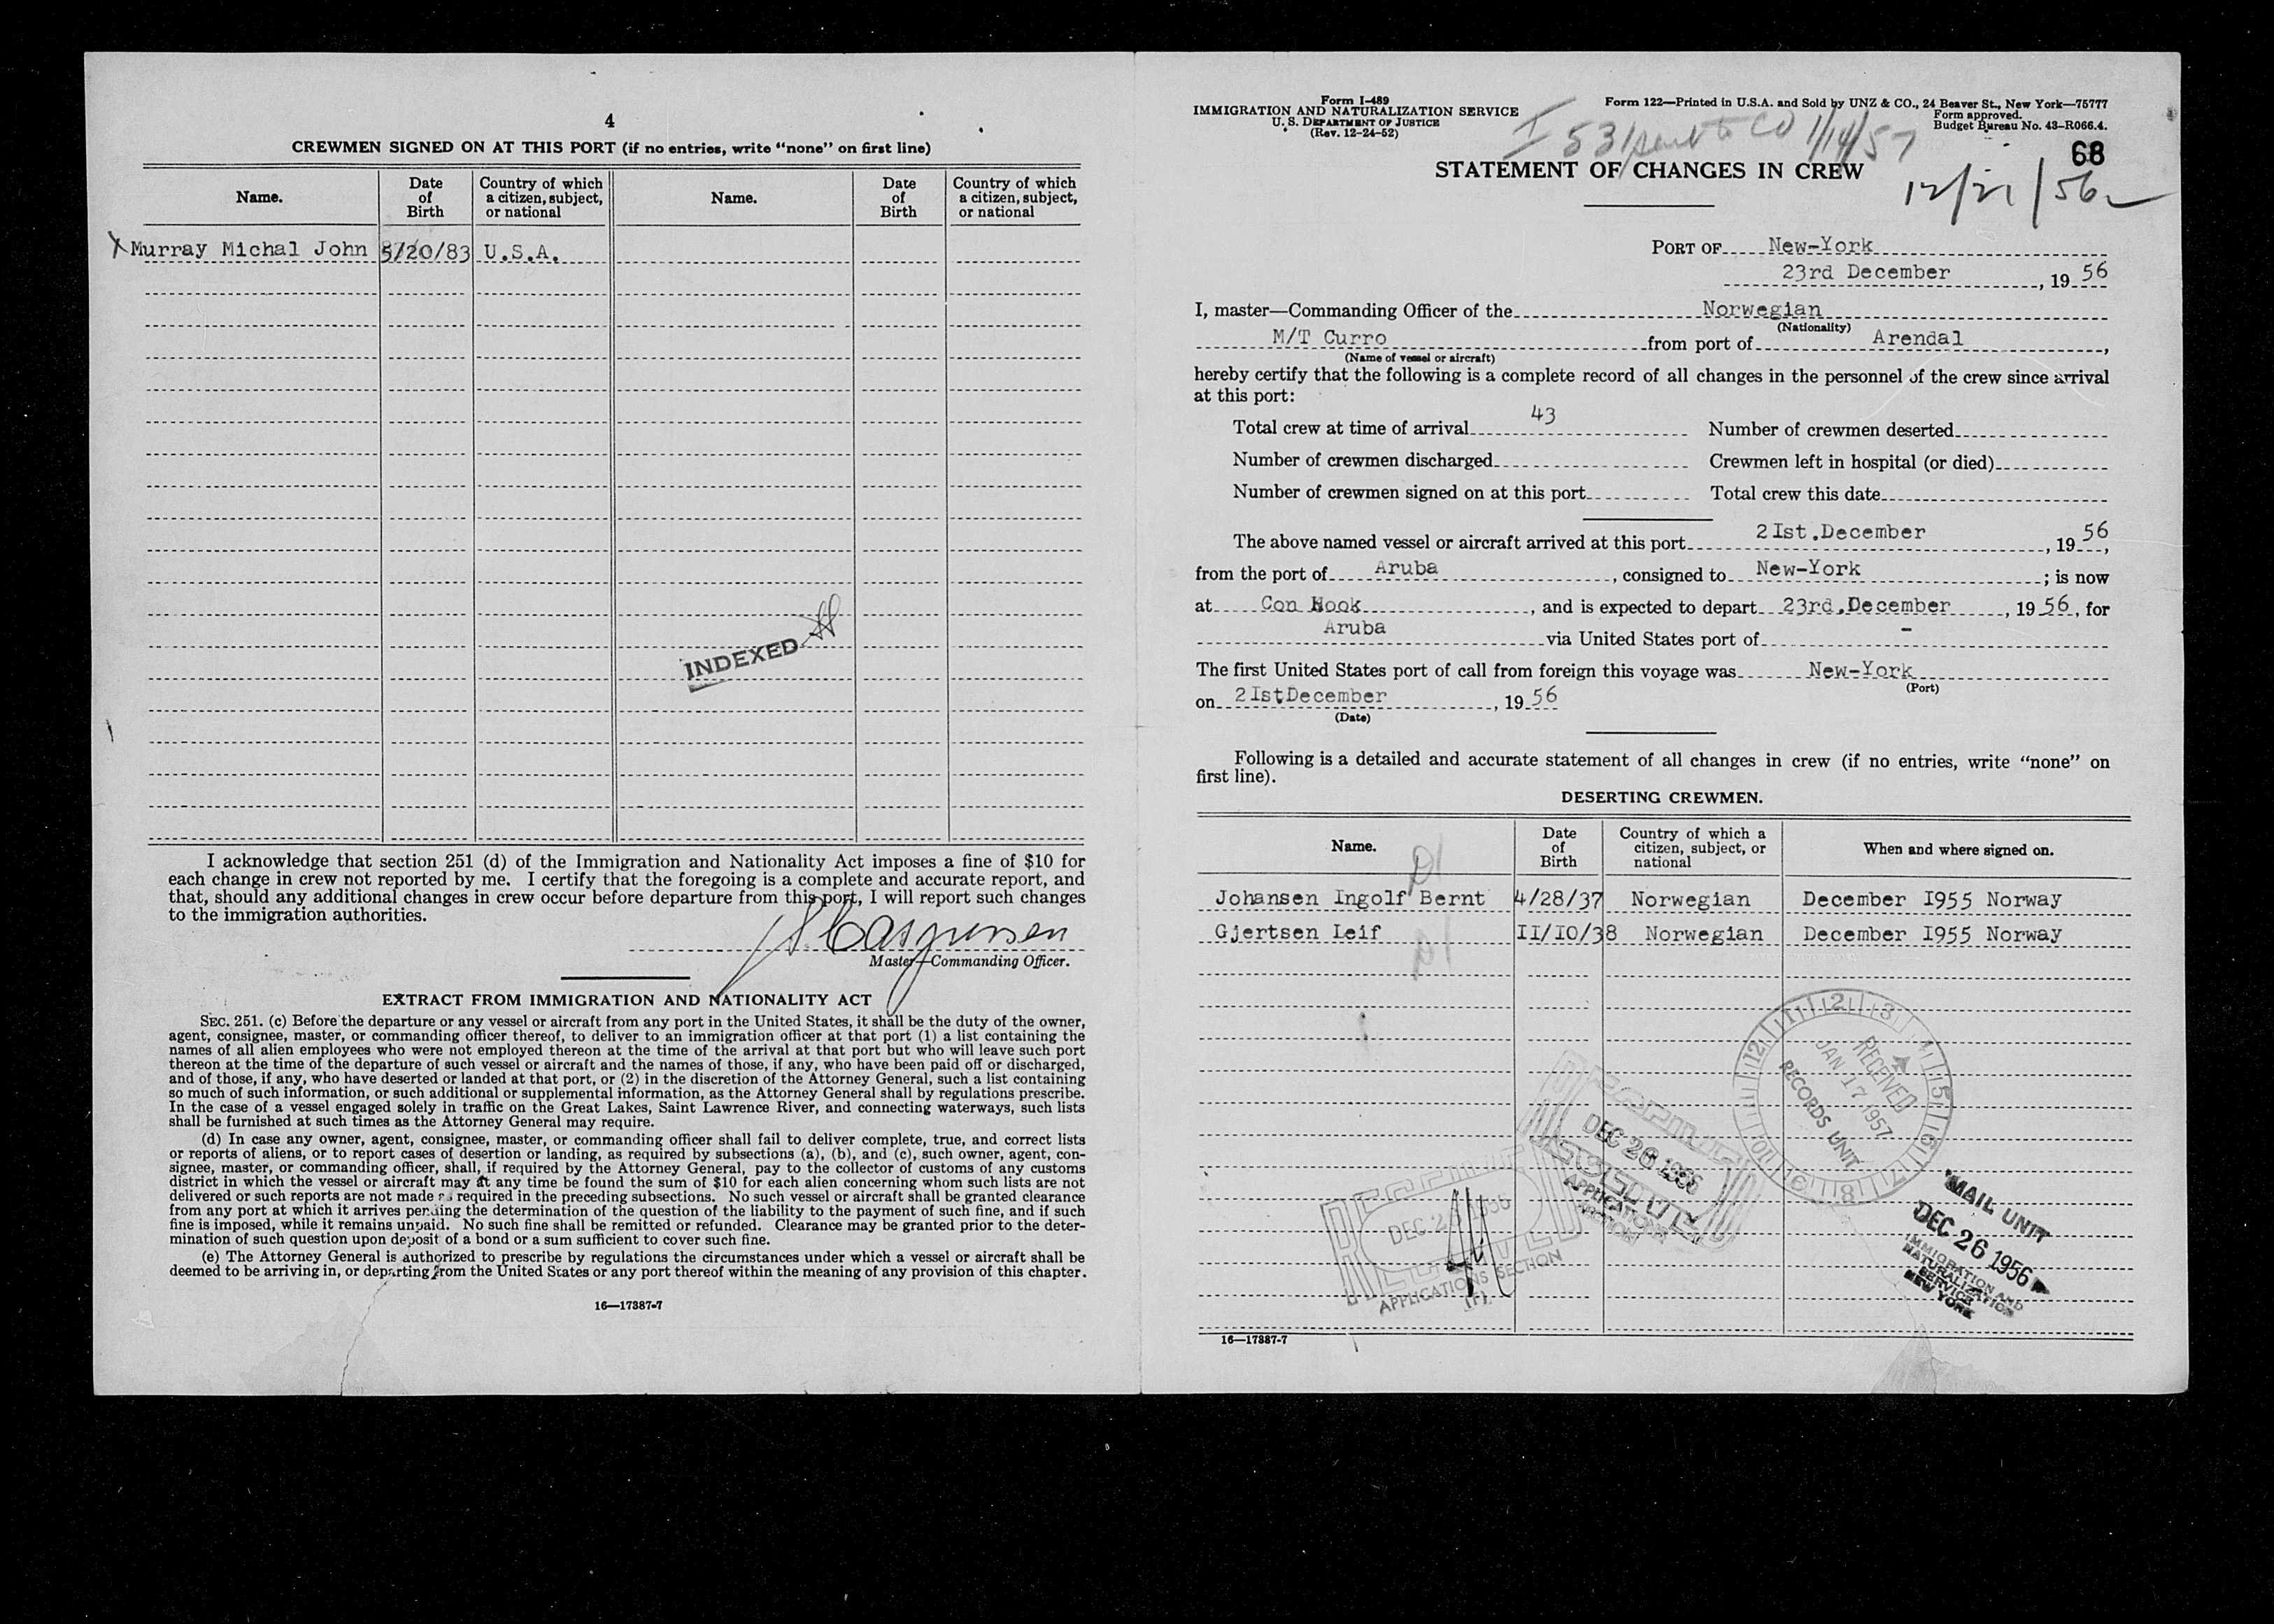 4
CREWMEN SIGNED ON AT THIS PORT (if no entries, write “none” on first line)
Name. Date of Birth Country of which a citizen, subject, or national Name. Date of Birth Country of which a citizen, subject, or national
X Murray Michal John 5/20/83 U.S.A.
INDEXED
I acknowledge that section 251 (d) of the Immigration and Nationality Act imposes a fine of $10 for
each change in crew not reported by me. I certify that the foregoing is a complete and accurate report, and
that, should any additional changes in crew occur before departure from this port, I will report such changes
to the immigration authorities.
Master—Commanding Officer.
EXTRACT FROM IMMIGRATION AND NATIONALITY ACT
SEC. 251. (c) Before the departure or any vessel or aircraft from any port in the United States, it shall be the duty of the owner,
agent, consignee, master, or commanding officer thereof, to deliver to an immigration officer at that port (1) a list containing the
names of all alien employees who were not employed thereon at the time of the arrival at that port but who will leave such port
thereon at the time of the departure of such vessel or aircraft and the names of those, if any, who have been paid off or discharged,
and of those, if any, who have deserted or landed at that port, or (2) in the discretion of the Attorney General, such a list containing
so much of such information, or such additional or supplemental information, as the Attorney General shall by regulations prescribe.
In the case of a vessel engaged solely in traffic on the Great Lakes, Saint Lawrence River, and connecting waterways, such lists
shall be furnished at such times as the Attorney General may require.
(d) In case any owner, agent, consignee, master, or commanding officer shall fail to deliver complete, true, and correct lists
or reports of aliens, or to report cases of desertion or landing, as required by subsections (a), (b), and (c), such owner, agent, con-
signee, master, or commanding officer, shall, if required by the Attorney General, pay to the collector of customs of any customs
district in which the vessel or aircraft may at any time be found the sum of $10 for each alien concerning whom such lists are not
delivered or such reports are not made as required in the preceding subsections. No such vessel or aircraft shall be granted clearance
from any port at which it arrives pending the determination of the question of the liability to the payment of such fine, and if such
fine is imposed, while it remains unpaid. No such fine shall be remitted or refunded. Clearance may be granted prior to the deter-
mination of such question upon deposit of a bond or a sum sufficient to cover such fine.
(e) The Attorney General is authorized to prescribe by regulations the circumstances under which a vessel or aircraft shall be
deemed to be arriving in, or departing from the United States or any port thereof within the meaning of any provision of this chapter.
16—17887-7
Form I-489
IMMIGRATION AND NATURALIZATION SERVICE
U. S. DEPARTMENT OF JUSTICE
(Rev. 12-24-52)
Form 122—Printed in U.S.A. and Sold by UNZ & CO., 24 Beaver St., New York—75777
Form approved.
Budget Bureau No. 43-R066.4.
I 53 sent to CO 1/14/57
68
STATEMENT OF CHANGES IN CREW
12/21/56
PORT OF New-York
23rd December, 19 56
I, master—Commanding Officer of the Norwegian
(Nationality)
M/T Curro from port of Arendal,
(Name of vessel or aircraft)
hereby certify that the following is a complete record of all changes in the personnel of the crew since arrival
at this port:
Total crew at time of arrival 43 Number of crewmen deserted
Number of crewmen discharged Crewmen left in hospital (or died)
Number of crewmen signed on at this port Total crew this date
The above named vessel or aircraft arrived at this port 2Ist.December, 19 56,
from the port of Aruba, consigned to New-York; is now
at Con Hook, and is expected to depart 23rd.December, 19 56, for
Aruba via United States port of -
The first United States port of call from foreign this voyage was New-York
(Port)
on 2IstDecember, 19 56
(Date)
Following is a detailed and accurate statement of all changes in crew (if no entries, write “none” on
first line).
DESERTING CREWMEN.
Name. Date of Birth Country of which a citizen, subject, or national When and where signed on.
Johansen Ingolf Bernt 4/28/37 Norwegian December I955 Norway
Gjertsen Leif II/IO/38 Norwegian December I955 Norway
RECEIVED
JAN 17 1957
RECORDS UNIT
DEC 26 1956
APPLICATIONS SECTION
DEC 26 1956
APPLICATIONS SECTION
MAIL UNIT
DEC 26 1956
IMMIGRATION AND
NATURALIZATION
SERVICE
NEW YORK
16—17887-7